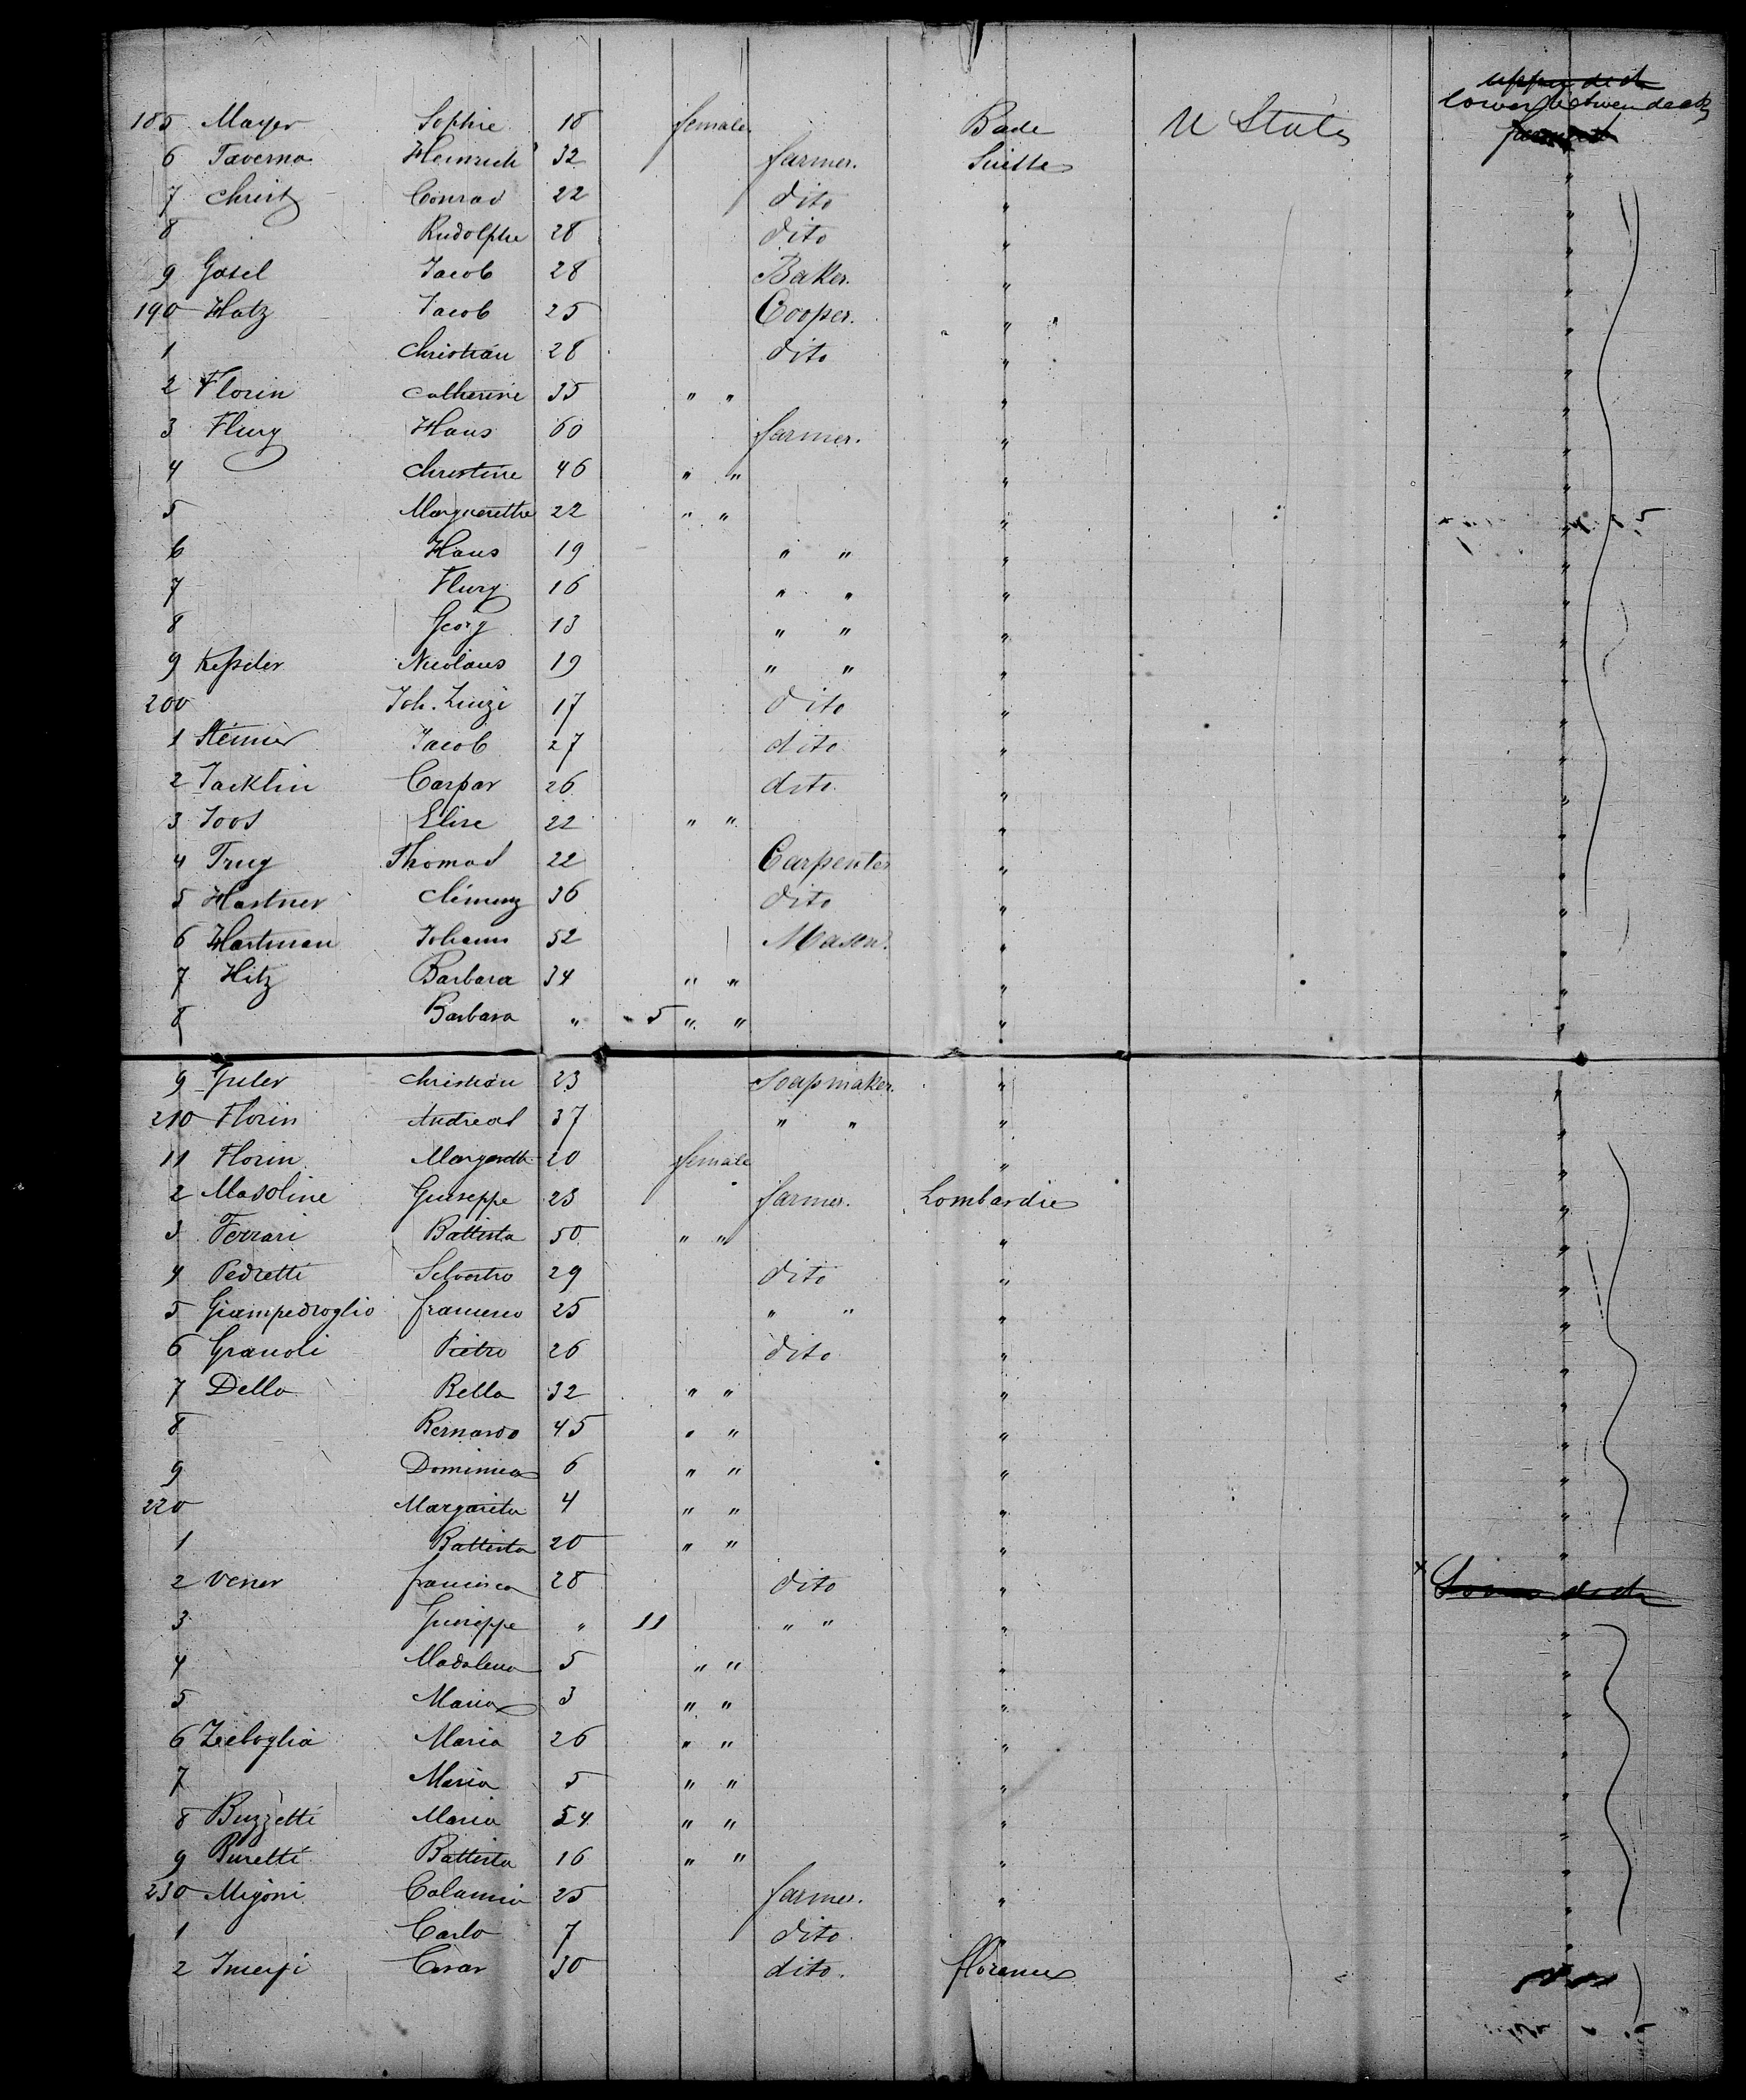 upper deck
lower between deck
185 Mayer Sophie 18 female Bade U States
6 Taverna Heinrich 32 farmer. Suisse "
7 Christ Conrad 22 dito " "
8 Rudolphe 28 dito " "
9 Gasel Jacob 28 Baker. " "
190 Hatz Jacob 25 Cooper. " "
1 Christian 28 dito " "
2 Florin Catherine 35 " " " "
3 Flury Hans 60 farmer. " "
4 Christine 46 " " " "
5 Marguerithe 22 " " " "
6 Hans 19 " " " "
7 Flury 16 " " " "
8 Georg 13 " " " "
9 Kessler Nicolaus 19 " " " "
200 Joh. Luzi 17 dito " "
1 Steiner Jacob 27 dito " "
2 Jacklin Caspar 26 dito " "
3 Joos Elise 22 " " " "
4 Trug Thomas 22 Carpenter " "
5 Hartner Clemenz 36 dito " "
6 Hartman Johann 52 Mason. " "
7 Hitz Barbara 34 " " " "
8 Barbara " 5 " " " "
9 Guler Christian 23 Soapmaker. " "
210 Florin Andreas 37 " " " "
11 Florin Margareth 20 female " "
2 Masoline Guiseppe 23 farmer. Lombardie "
3 Ferrari Battista 50 " " " "
4 Pedretti Silvestro 29 dito " "
5 Giampedroglio francesco 25 " " " "
6 Granoli Pietro 26 dito " "
7 Della Bella 32 " " " "
8 Bernardo 45 " " " "
9 Dominica 6 " " " "
220 Margarita 4 " " " "
1 Battista 20 " " " "
2 Vener francisca 28 dito " Lower deck
3 Guiseppe " 11 " " " "
4 Madalena 5 " " " "
5 Maria 3 " " " "
6 Zeboglia Maria 26 " " " "
7 Maria 5 " " " "
8 Buzzetti Maria 54 " " " "
9 Buretti Battista 16 " " " "
230 Migoni Calamia 25 farmer. " "
1 Carlo 7 dito. "
2 Cesar 30 dito. florence